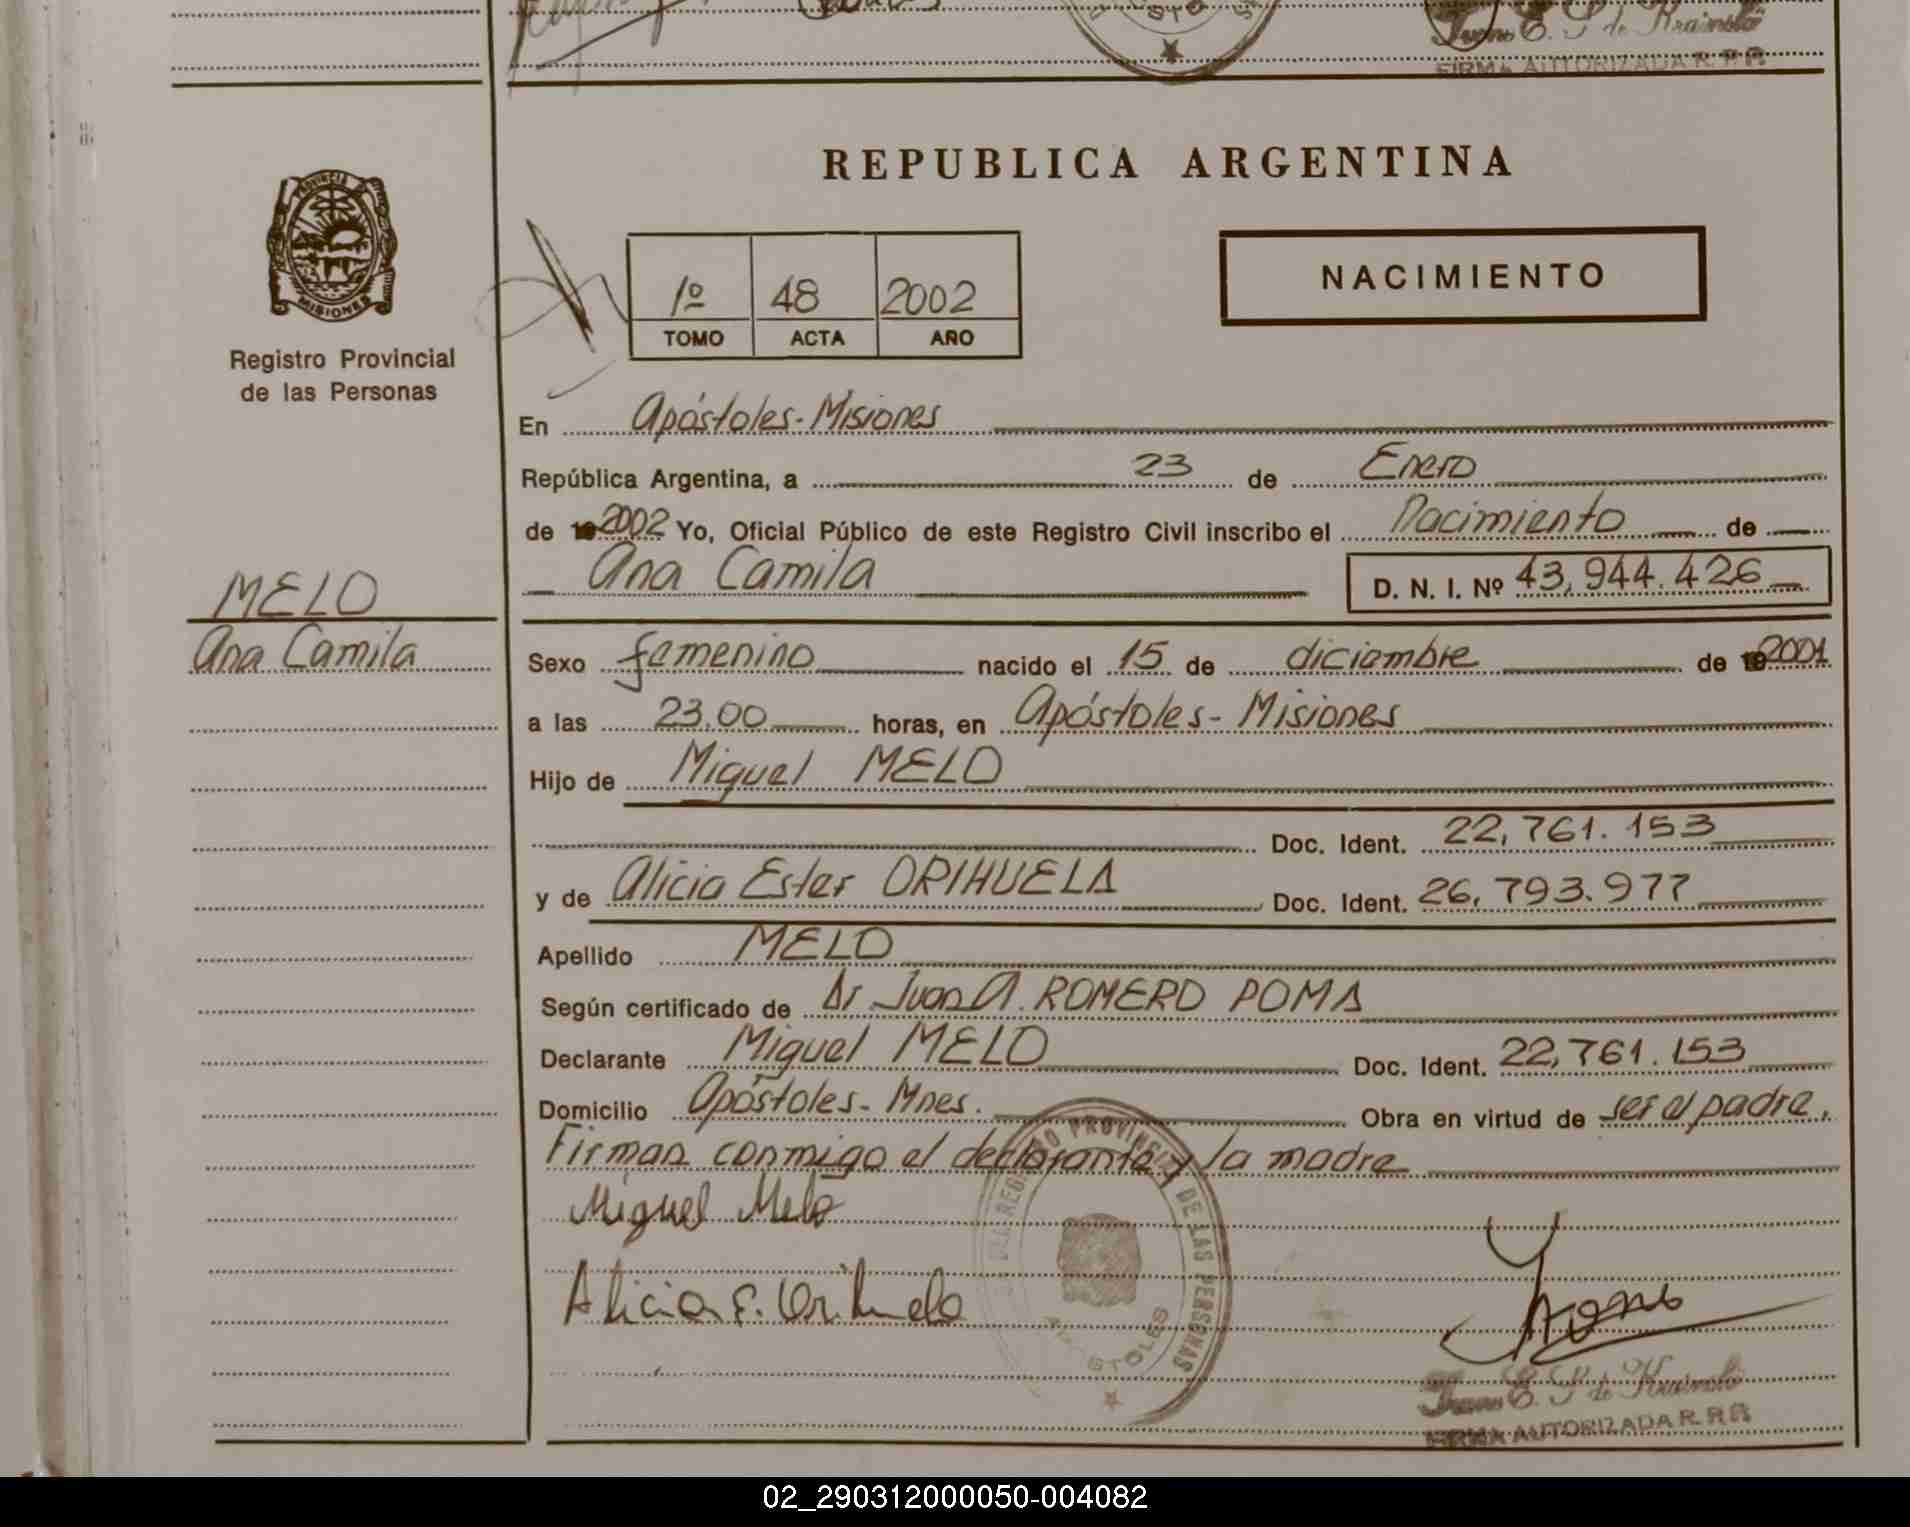 FIRMA AUTORIZADA R. P. P.
PROVINCIA DE
MISIONES
Registro Provincial
de las Personas
MELO
Ana Camila
REPUBLICA ARGENTINA
1º 48 2002
TOMO ACTA AÑO
NACIMIENTO
En Apóstoles - Misiones
República Argentina, a 23 de Enero
de 19 2002 Yo, Oficial Público de este Registro Civil inscribo el Nacimiento de
Ana Camila D. N. I. Nº 43,944.426
Sexo femenino nacido el 15 de diciembre de 19 2001
a las 23.00 horas, en Apóstoles - Misiones
Hijo de Miguel MELO
Doc. Ident. 22,761.153
y de Alicia Ester ORIHUELA Doc. Ident. 26.793.977
Apellido MELO
Según certificado de Dr Juan A. ROMERO POMA
Declarante Miguel MELO Doc. Ident. 22,761.153
Domicilio Apóstoles - Mnes. Obra en virtud de ser el padre.
Firman conmigo el declarante y la madre
Miguel Melo
Alicia E. Orihuela
REGISTRO PROVINCIAL DE LAS PERSONAS
APOSTOLES
FIRMA AUTORIZADA R. P. P.
02_290312000050-004082